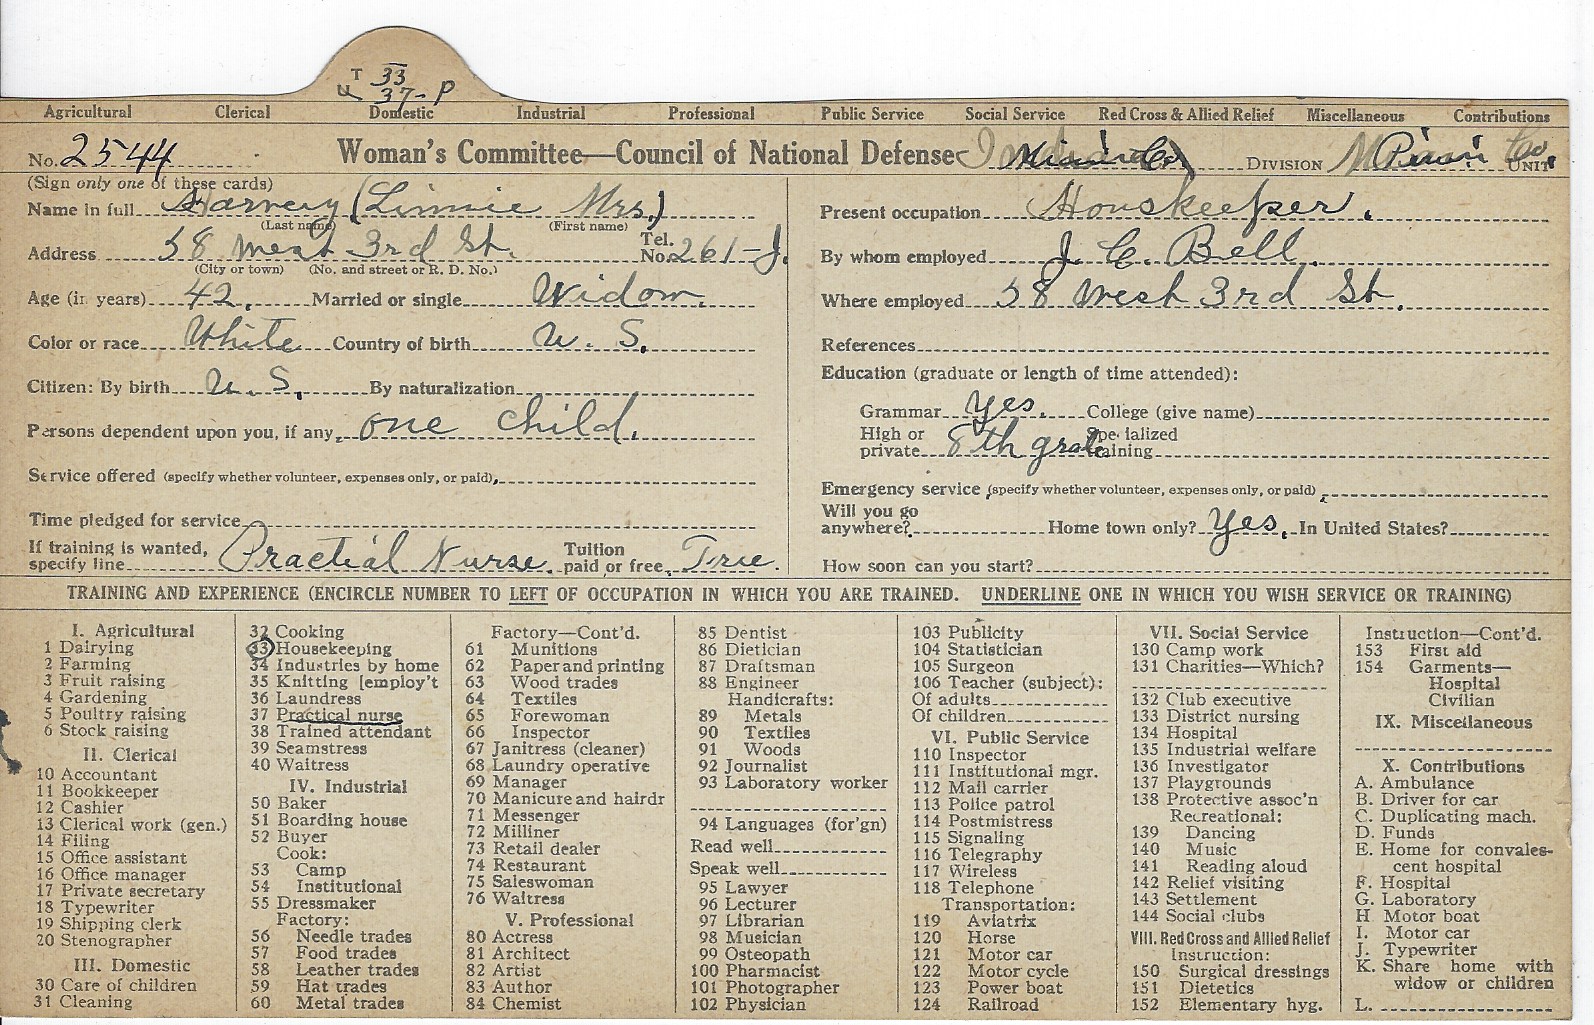 T 33
U 37-P
Agricultural Clerical Domestic Industrial Professional Public Service Social Service Red Cross & Allied Relief Miscellaneous Contributions
No. 2544 Woman's Committee—Council of National Defense Miami Co. DIVISION Co. UNIT
(Sign only one of these cards)
Name in full Harvery (Linnie Mrs.)
(Last name) (First name)
Address 58 West 3rd St. Tel. No. 261-J.
(City or town) (No. and street or R. D. No.)
Age (in years) 42. Married or single Widow.
Color or race White Country of birth U. S.
Citizen: By birth U. S. By naturalization
Persons dependent upon you, if any, one child.
Service offered (specify whether volunteer, expenses only, or paid),
Time pledged for service
If training is wanted, specify line Practial Nurse. Tuition paid or free, Free.
Present occupation Houskeeper.
By whom employed J. C. Bell.
Where employed 58 West 3rd St.
References
Education (graduate or length of time attended):
Grammar Yes. College (give name)
High or private 8th grade Specialized training
Emergency service (specify whether volunteer, expenses only, or paid),
Will you go anywhere? Home town only? Yes. In United States?
How soon can you start?
TRAINING AND EXPERIENCE (ENCIRCLE NUMBER TO LEFT OF OCCUPATION IN WHICH YOU ARE TRAINED. UNDERLINE ONE IN WHICH YOU WISH SERVICE OR TRAINING)
I. Agricultural
1 Dairying
2 Farming
3 Fruit raising
4 Gardening
5 Poultry raising
6 Stock raising
II. Clerical
10 Accountant
11 Bookkeeper
12 Cashier
13 Clerical work (gen.)
14 Filing
15 Office assistant
16 Office manager
17 Private secretary
18 Typewriter
19 Shipping clerk
20 Stenographer
III. Domestic
30 Care of children
31 Cleaning
32 Cooking
33 Housekeeping
34 Industries by home
35 Knitting [employ't
36 Laundress
37 Practical nurse
38 Trained attendant
39 Seamstress
40 Waitress
IV. Industrial
50 Baker
51 Boarding house
52 Buyer
Cook:
53 Camp
54 Institutional
55 Dressmaker
Factory:
56 Needle trades
57 Food trades
58 Leather trades
59 Hat trades
60 Metal trades
Factory—Cont'd.
61 Munitions
62 Paper and printing
63 Wood trades
64 Textiles
65 Forewoman
66 Inspector
67 Janitress (cleaner)
68 Laundry operative
69 Manager
70 Manicure and hairdr
71 Messenger
72 Milliner
73 Retail dealer
74 Restaurant
75 Saleswoman
76 Waitress
V. Professional
80 Actress
81 Architect
82 Artist
83 Author
84 Chemist
85 Dentist
86 Dietician
87 Draftsman
88 Engineer
Handicrafts:
89 Metals
90 Textiles
91 Woods
92 Journalist
93 Laboratory worker
94 Languages (for'gn)
Read well
Speak well
95 Lawyer
96 Lecturer
97 Librarian
98 Musician
99 Osteopath
100 Pharmacist
101 Photographer
102 Physician
103 Publicity
104 Statistician
105 Surgeon
106 Teacher (subject):
Of adults
Of children
VI. Public Service
110 Inspector
111 Institutional mgr.
112 Mail carrier
113 Police patrol
114 Postmistress
115 Signaling
116 Telegraphy
117 Wireless
118 Telephone
Transportation:
119 Aviatrix
120 Horse
121 Motor car
122 Motor cycle
123 Power boat
124 Railroad
VII. Social Service
130 Camp work
131 Charities—Which?
132 Club executive
133 District nursing
134 Hospital
135 Industrial welfare
136 Investigator
137 Playgrounds
138 Protective assoc'n
Recreational:
139 Dancing
140 Music
141 Reading aloud
142 Relief visiting
143 Settlement
144 Social clubs
VIII. Red Cross and Allied Relief
Instruction:
150 Surgical dressings
151 Dietetics
152 Elementary hyg.
Instruction—Cont'd.
153 First aid
154 Garments—
Hospital
Civilian
IX. Miscellaneous
X. Contributions
A. Ambulance
B. Driver for car
C. Duplicating mach.
D. Funds
E. Home for convales-
cent hospital
F. Hospital
G. Laboratory
H Motor boat
I. Motor car
J. Typewriter
K. Share home with
widow or children
L.